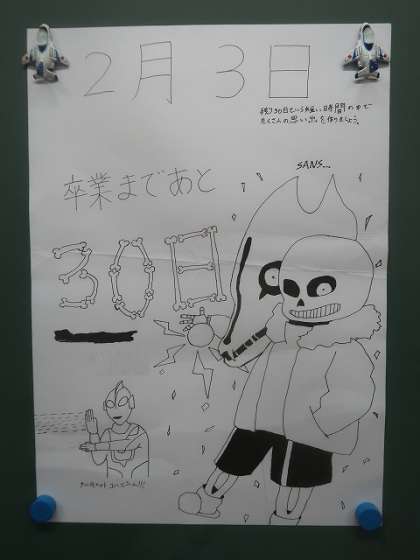 2月3日
残り30日という短い時間の中で
たくさんの思い出を作りましょう。
SANS...
卒業まであと
30日